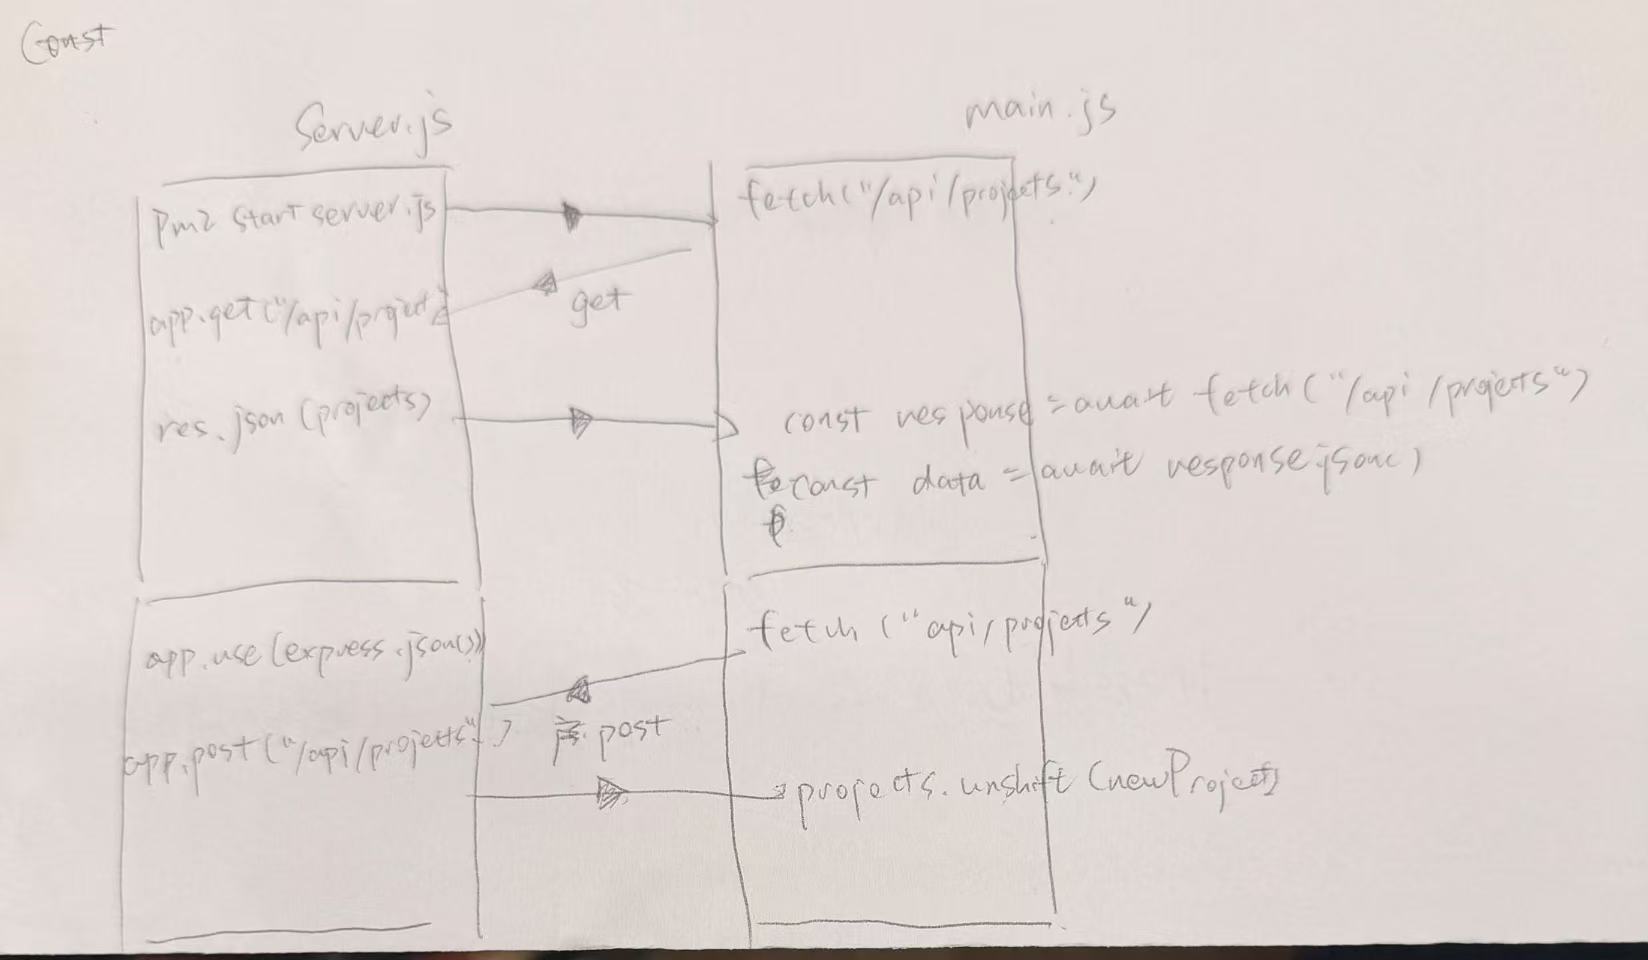 Const
Server.js
main.js
pm2 start server.js
fetch("/api/projects.")
app.get("/api/project
get
res.json(projects)
const response = await fetch("/api/projects")
const data = await response.json()
app.use(express.json())
fetch("api/projects")
app.post("/api/projects")
post
projects.unshift(newProject)